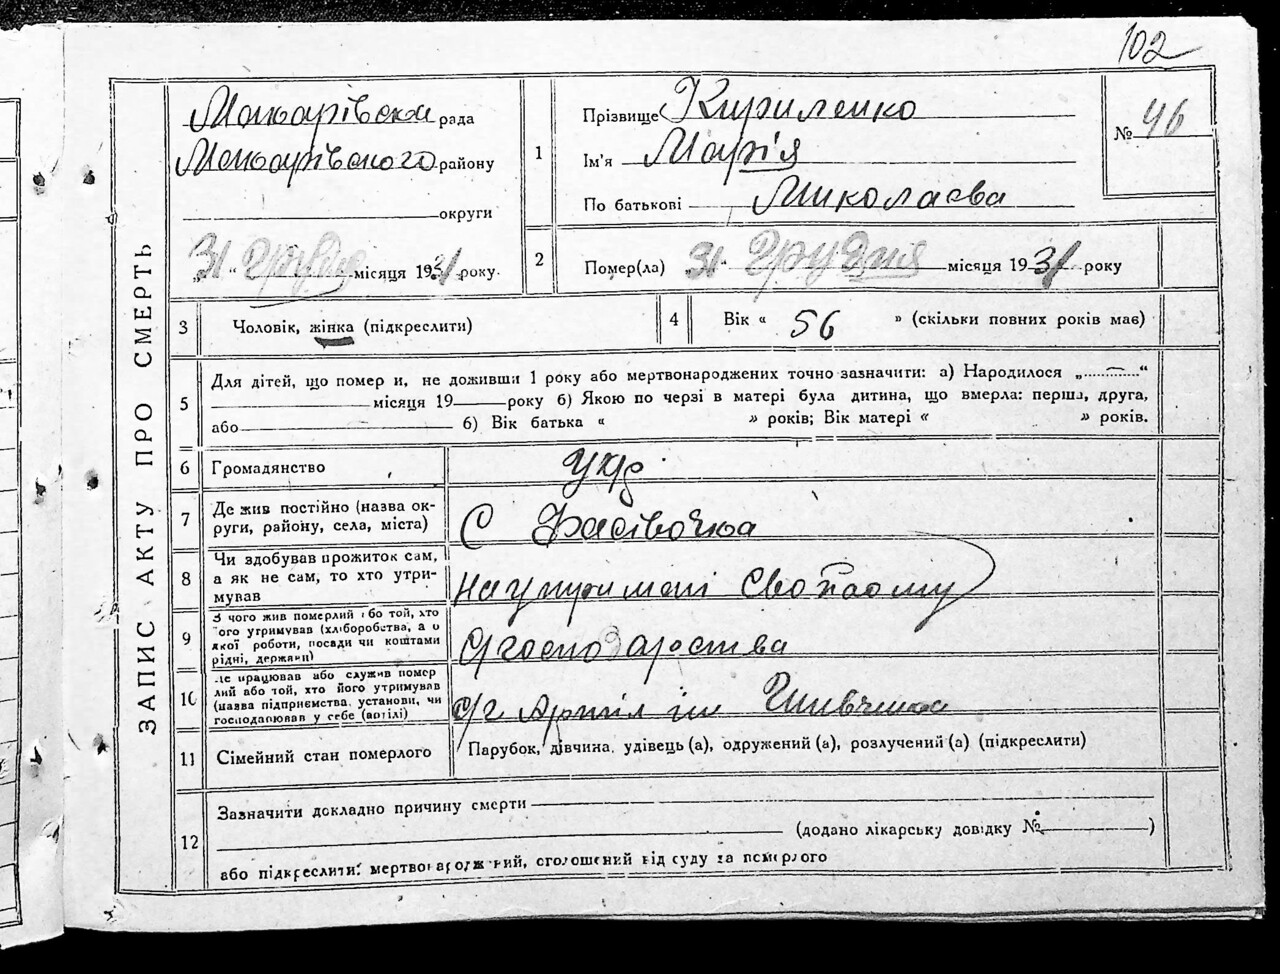 102
ЗАПИС АКТУ ПРО СМЕРТЬ
Макарівська рада
Макарівского району
округи
„31“ Грудня місяця 1931 року
1
Прізвище Кириленко
Ім'я Марія
По батькові Миколаєва
№ 46
2
Помер(ла) „31 Грудня місяця 1931 року
3
Чоловік, жінка (підкреслити)
4
Вік « 56 » (скільки повних років має)
5
Для дітей, що помер и, не доживши 1 року або мертвонароджених точно зазначити: а) Народилося „ “
місяця 19 року б) Якою по черзі в матері була дитина, що вмерла: перша, друга,
або б) Вік батька « » років; Вік матері « » років.
6
Громадянство
Укр
7
Де жив постійно (назва ок-
руги, району, села, міста)
С Фасівочка
8
Чи здобував прожиток сам,
а як не сам, то хто утри-
мував
на утримані
9
З чого жив померлий або той, хто
його утримував (хліборобства, а о
якої роботи, посади чи коштами
рідні, держави)
господарства
10
Де працював або служив помер
лий або той, хто його утримував
(назва підприємства, установи, чи
господарював у себе (вотілі)
с/г Артіл ім Шевченка
11
Сімейний стан померлого
Парубок, дівчина, удівець (а), одружений (а), розлучений (а) (підкреслити)
12
Зазначити докладно причину смерти
(додано лікарську довідку № )
або підкреслити: мертвонароджений, оголошений від суду за померлого